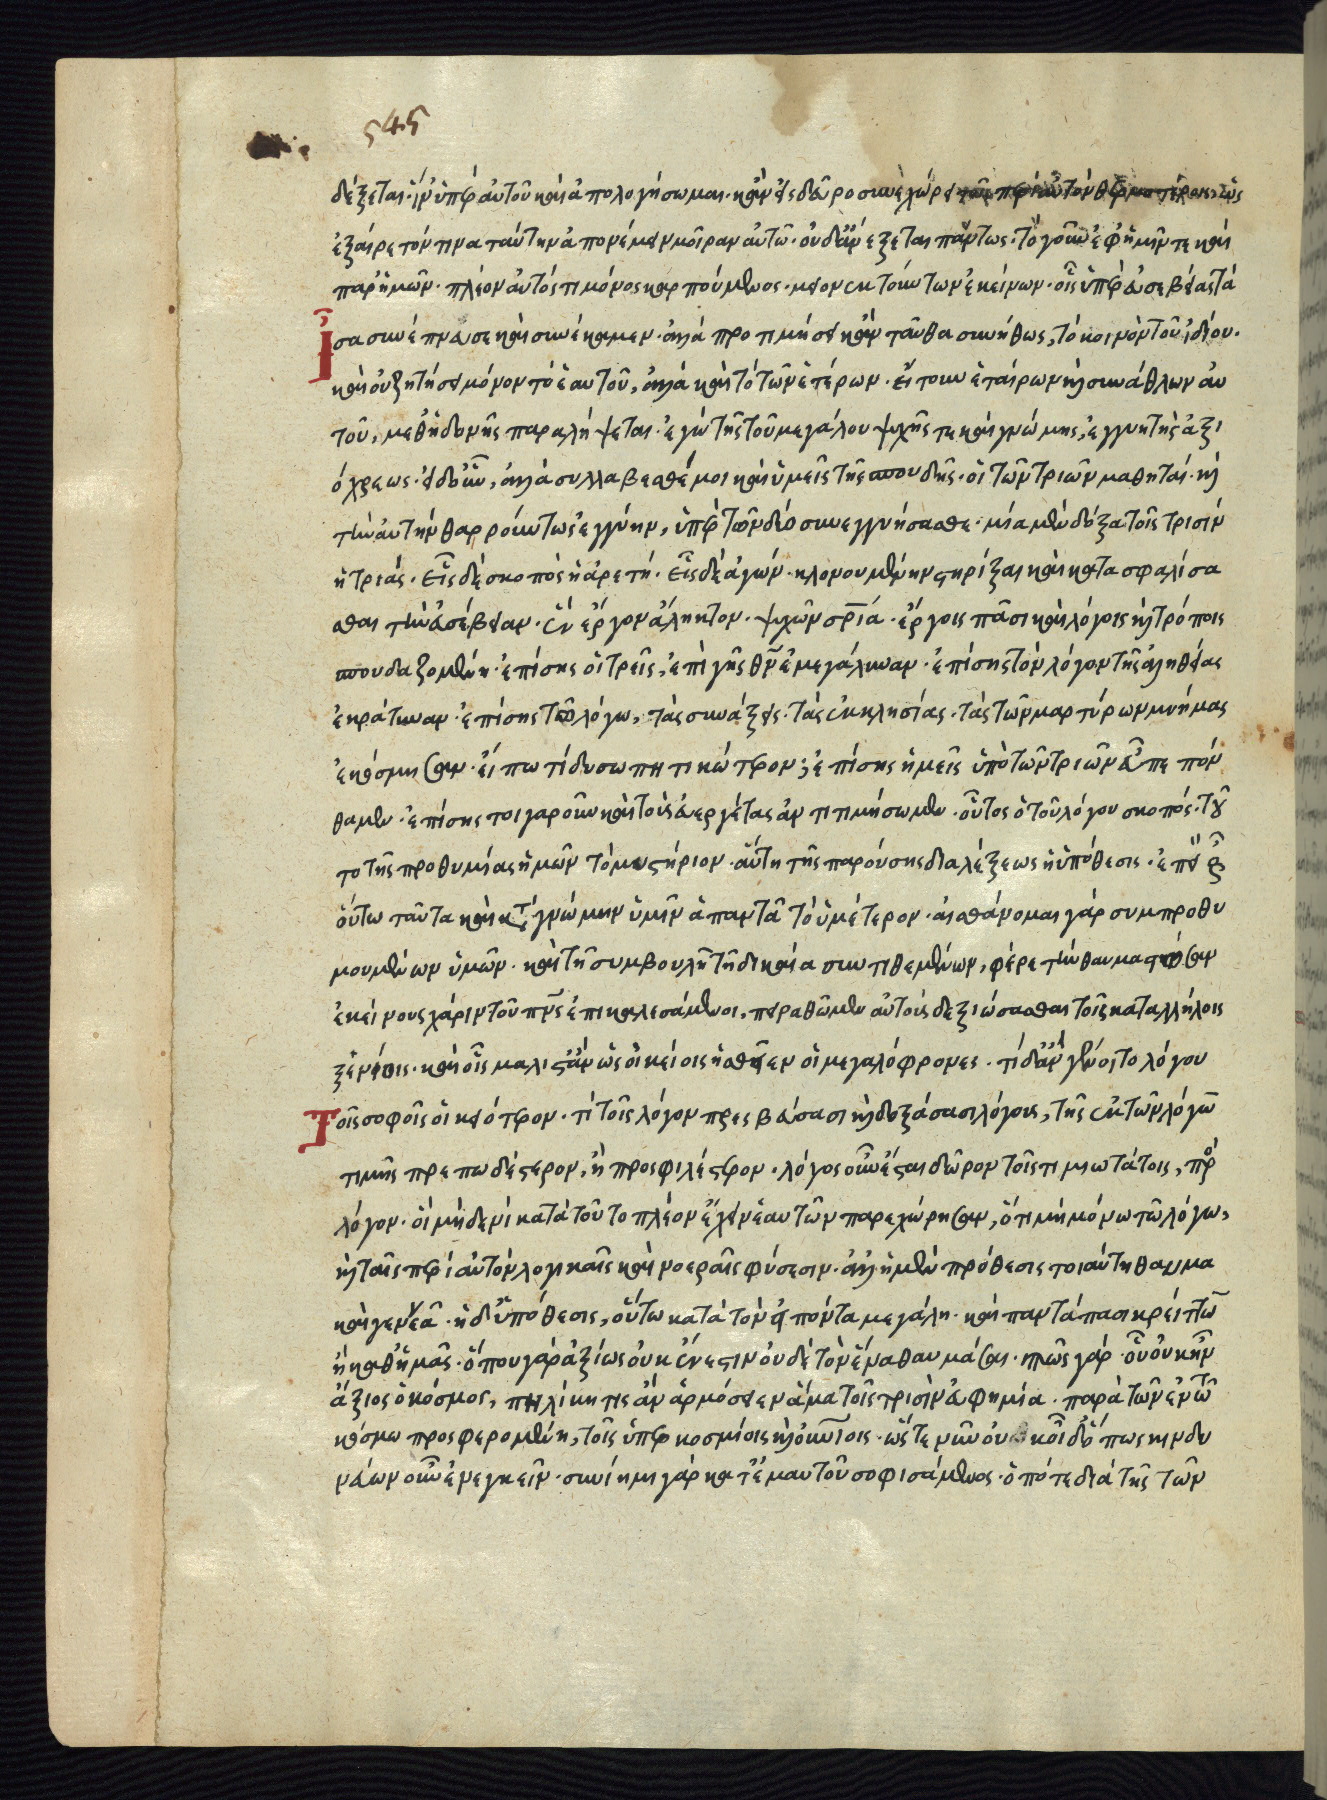 545
δέξεται· ἵν' ὑπὲρ αὐτοῦ καὶ ἀπολογήσωμαι· κἂν εἰς δεῦρο συνεχώρει τοῖς περὶ αὐτὸν θερμοτέροις, ὡς
ἐξαίρετόν τινα ταύτην ἀπονέμειν μοῖραν αὐτῷ· οὐδ' ἀνέξεται πάντως· τὸ γοῦν ἐφ' ἡμῖν τε καὶ
παρ' ἡμῶν· πλέον αὐτός τι μόνος καρπούμενος· μεῖον ἐκ τούτων ἐκείνων· οἷς ὑπὲρ εὐσεβείας τὰ
ἴσα συνέπνευσε καὶ συνέκαμεν· ἀλλὰ προτιμήσει κἀνταῦθα συνήθως, τὸ κοινὸν τοῦ ἰδίου·
καὶ οὐ ζητήσει μόνον τὸ ἑαυτοῦ, ἀλλὰ καὶ τὸ τῶν ἑτέρων· εἴτουν ἑταίρων καὶ συνάθλων αὐ
τοῦ, μεθ' ἡδονῆς παραλήψεται· ἐγὼ τῆς τοῦ μεγάλου ψυχῆς τε καὶ γνώμης, ἐγγυητὴς ἀξι
όχρεως· εἰ δ' οὖν, ἀλλὰ συλλάβεσθέ μοι καὶ ὑμεῖς τῆς σπουδῆς· οἱ τῶν τριῶν μαθηταί· καὶ
τὴν αὐτὴν θαρρούντως ἐγγύην, ὑπὲρ τῶν δύο συνεγγυήσασθε· μία μὲν δόξα τοῖς τρισὶν
ἡ τριάς· εἷς δὲ σκοπὸς ἡ ἀρετή· εἷς δὲ ἀγών· κλονουμένην στηρίξαι καὶ κατασφαλίσα
σθαι τὴν εὐσέβειαν· ἓν ἔργον ἄληκτον· ψυχῶν σρία· ἔργοις πᾶσι καὶ λόγοις καὶ τρόποις
σπουδαζομένη· ἐπίσης οἱ τρεῖς, ἐπὶ γῆς θν ἐμεγάλυναν· ἐπίσης τὸν λόγον τῆς ἀληθείας
ἐκράτυναν· ἐπίσης τῷ λόγω, τὰς συνάξεις· τὰς ἐκκλησίας· τὰς τῶν μαρτύρων μνήμας
ἐκόσμησαν· εἴπω τί δυσωπητικώτερον; ἐπίσης ἡμεῖς ὑπὸ τῶν τριῶν εὖ πεπόν
θαμεν· ἐπίσης τοιγαροῦν καὶ τοὺς εὐεργέτας ἀντιτιμήσωμεν· οὗτος ὁ τοῦ λόγου σκοπός· τοῦ
το τῆς προθυμίας ἡμῶν τὸ μυστήριον· αὕτη τῆς παρούσης διαλέξεως ἡ ὑπόθεσις· ἐπεὶ δὲ
οὕτω ταῦτα καὶ κατὰ γνώμην ὑμῖν ἀπαντᾷ τὸ ὑμέτερον· αἰσθάνομαι γὰρ συμπροθυ
μουμένων ὑμῶν· καὶ τῇ συμβουλῇ τῇ δικαία συντιθεμένων, φέρε τὴν θαυμαστῶσαν
ἐκείνους χάριν τοῦ πνς ἐπικαλεσάμενοι, πειραθῶμεν αὐτοὺς δεξιώσασθαι τοῖς καταλλήλοις
ξενίοις· καὶ οἷς μάλιστ' ἂν ὡς οἰκείοις ἡσθεῖεν οἱ μεγαλόφρονες· τί δ' ἂν γένοιτο λόγου
Τοῖς σοφοῖς οἰκειότερον· τί τοῖς λόγον πρεσβεύσασι καὶ δοξάσασι λόγοις, τῆς ἐκ τῶν λόγων
τιμῆς πρεπωδέστερον, ἢ προσφιλέστερον· λόγος οὖν ἔσται δῶρον τοῖς τιμιωτάτοις, παρὰ
λόγον· οἳ μηδενὶ κατὰ τοῦτο πλέον ἔχειν ἑαυτῶν παρεχώρησαν, ὅτι μὴ μόνω τῷ λόγω,
καὶ ταῖς περὶ αὐτὸν λογικαῖς καὶ νοεραῖς φύσεσιν· ἀλλ' ἡ μὲν πρόθεσις τοιαύτη θαῦμα
καὶ γενναία· ἡ δ' ὑπόθεσις, οὕτω κατὰ τὸν εἰπόντα μεγάλη· καὶ παντάπασι κρείττων
ἢ καθ' ἡμᾶς· ὅπου γὰρ ἀξίως οὐκ ἔνεστιν οὐδὲ τὸν ἕνα θαυμάσαι· πῶς γὰρ· οὗ οὐκ ἦν
ἄξιος ὁ κόσμος, πηλίκη τις ἂν ἁρμόσειεν ἅμα τοῖς τρισὶν εὐφημία· παρὰ τῶν ἐν τῷ
κόσμω προσφερομένη, τοῖς ὑπερκοσμίοις καὶ οὐνίοις· ὥστε νῦν οὐκ οἶδ' ὅπως κινδυ
νεύων οὖν ἐνεγκεῖν· συνίημι γὰρ κατ' ἐμαυτοῦ σοφισάμενος· ὁπότε διὰ τῆς τῶν